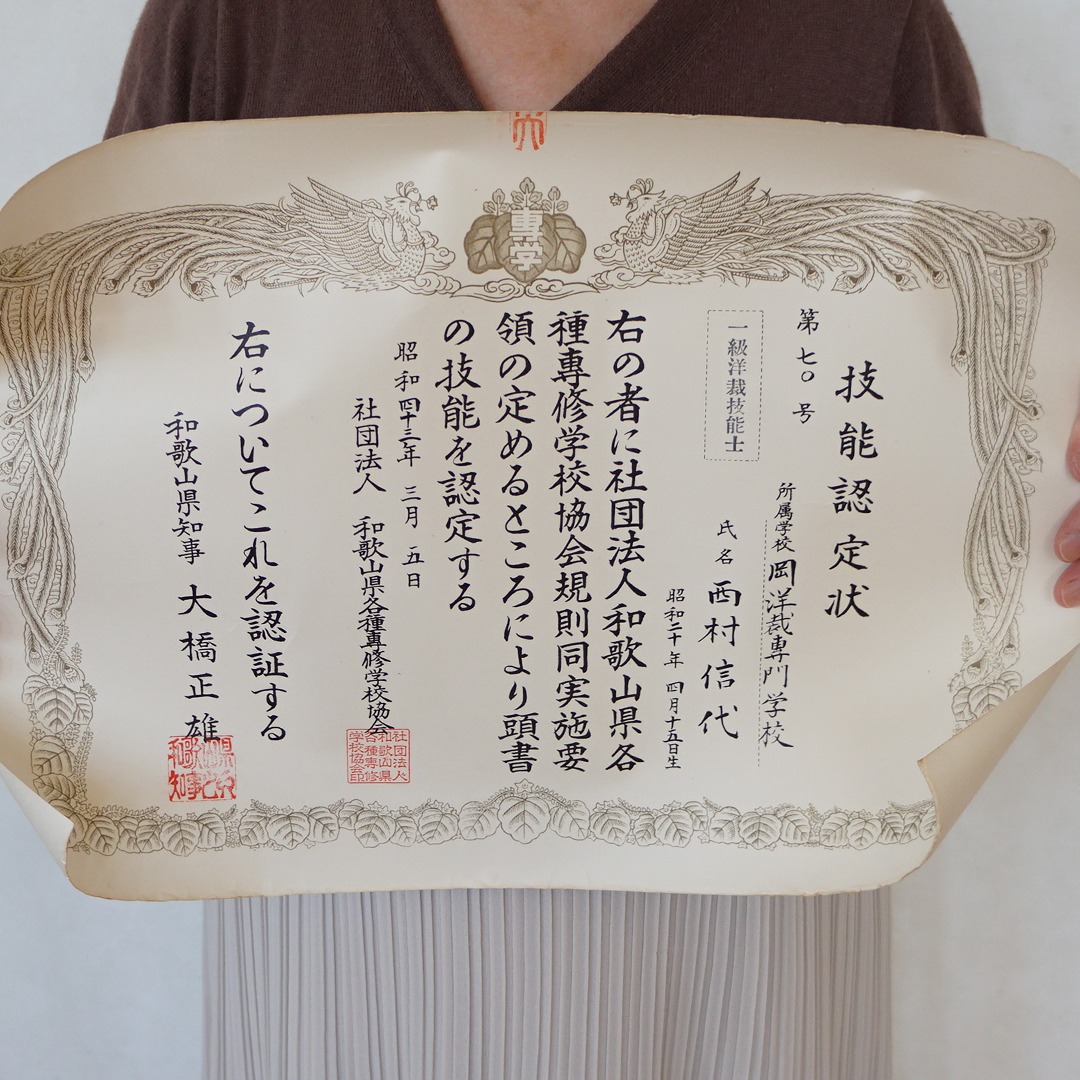 專学
技能認定状
第七〇号
所属学校 岡洋裁専門学校
一級洋裁技能士
氏名 西村信代
昭和二十年 四月十五日生
右の者に社団法人和歌山県各
種専修学校協会規則同実施要
領の定めるところにより頭書
の技能を認定する
昭和四十三年 三月 五日
社団法人 和歌山県各種専修学校協会
社団法人
和歌山県
各種専修
学校協会印
右についてこれを認証する
和歌山県知事 大橋正雄